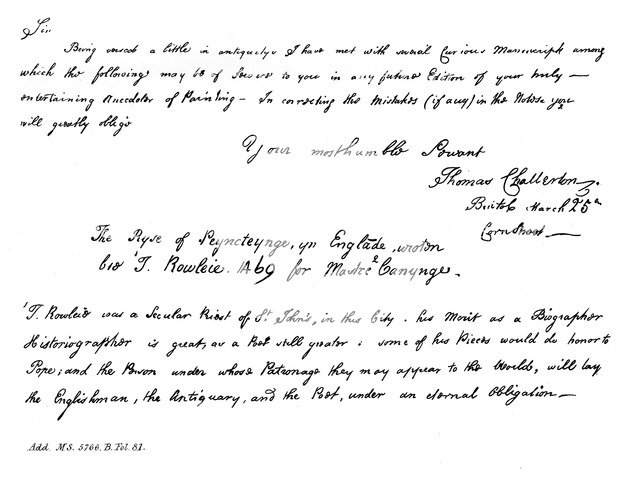 Sir
Being versed a little in antiquitys I have met with several Curious Manuscripts among
which the following may be of Service to you in any future Edition of your truly —
entertaining Anecdotes of Painting — In correcting the Mistakes (if any) in the Notes you
will greatly oblige
Your most humble Servant
Thomas Chatterton
Bristol March 25th
Corn Street —
The Ryse of Peyncteynge, yn Englāde, wroten
bie T. Rowleie. 1469 for Mastre Canynge.
T. Rowleie was a Secular Priest of St John's, in this City. his Merit as a Biographer
Historiographer is great, as a Poet still greater: some of his Pieces would do honor to
Pope; and the Person under whose Patronage they may appear to the World, will lay
the Englishman, the Antiquary, and the Poet, under an eternal Obligation —
Add. MS. 5766. B. Fol. 81.